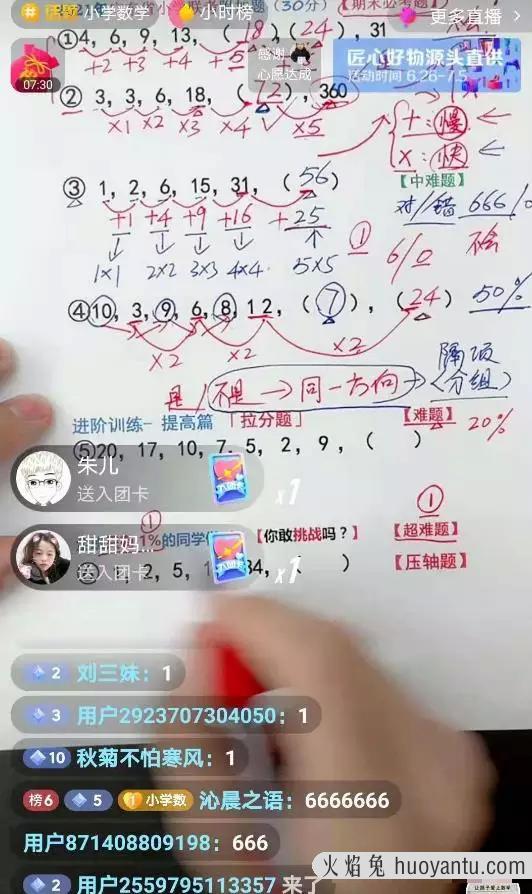 话题 小学数学 小时榜 更多直播 >
(30分) 【期末必考题】
匠心好物源头直供
活动时间 6.26-7.5
感谢
心愿达成
07:30
①4, 6, 9, 13, (18)(24), 31
+2 +3 +4 +5
② 3, 3, 6, 18, (72), 360
×1 ×2 ×3 ×4 ×5
+:慢
×:快
【中难题】
③ 1, 2, 6, 15, 31, (56)
+1 +4 +9 +16 +25
1×1 2×2 3×3 4×4 5×5
①
对/错 666/0
6/0
不会
④10, 3, 9, 6, 8, 12, (7), (24)
50%
×2 ×2 ×2
隔项
是/不是→同一方向→(分组)
进阶训练- 提高篇 「拉分题」
【难题】
20%
⑤20, 17, 10, 7, 5, 2, 9, ( )
朱儿
送入团卡
x1
①
①
1%的同学
【你敢挑战吗？】
【超难题】
甜甜妈...
送入团卡
x1
2, 5, 34, )
【压轴题】
2 刘三妹：1
3 用户2923707304050：1
10 秋菊不怕寒风：1
榜6 5 1 小学数 沁晨之语：6666666
用户871408809198：666
2 用户2559795113357 来了
火焰兔 huoyantu.com
让孩子爱上数学